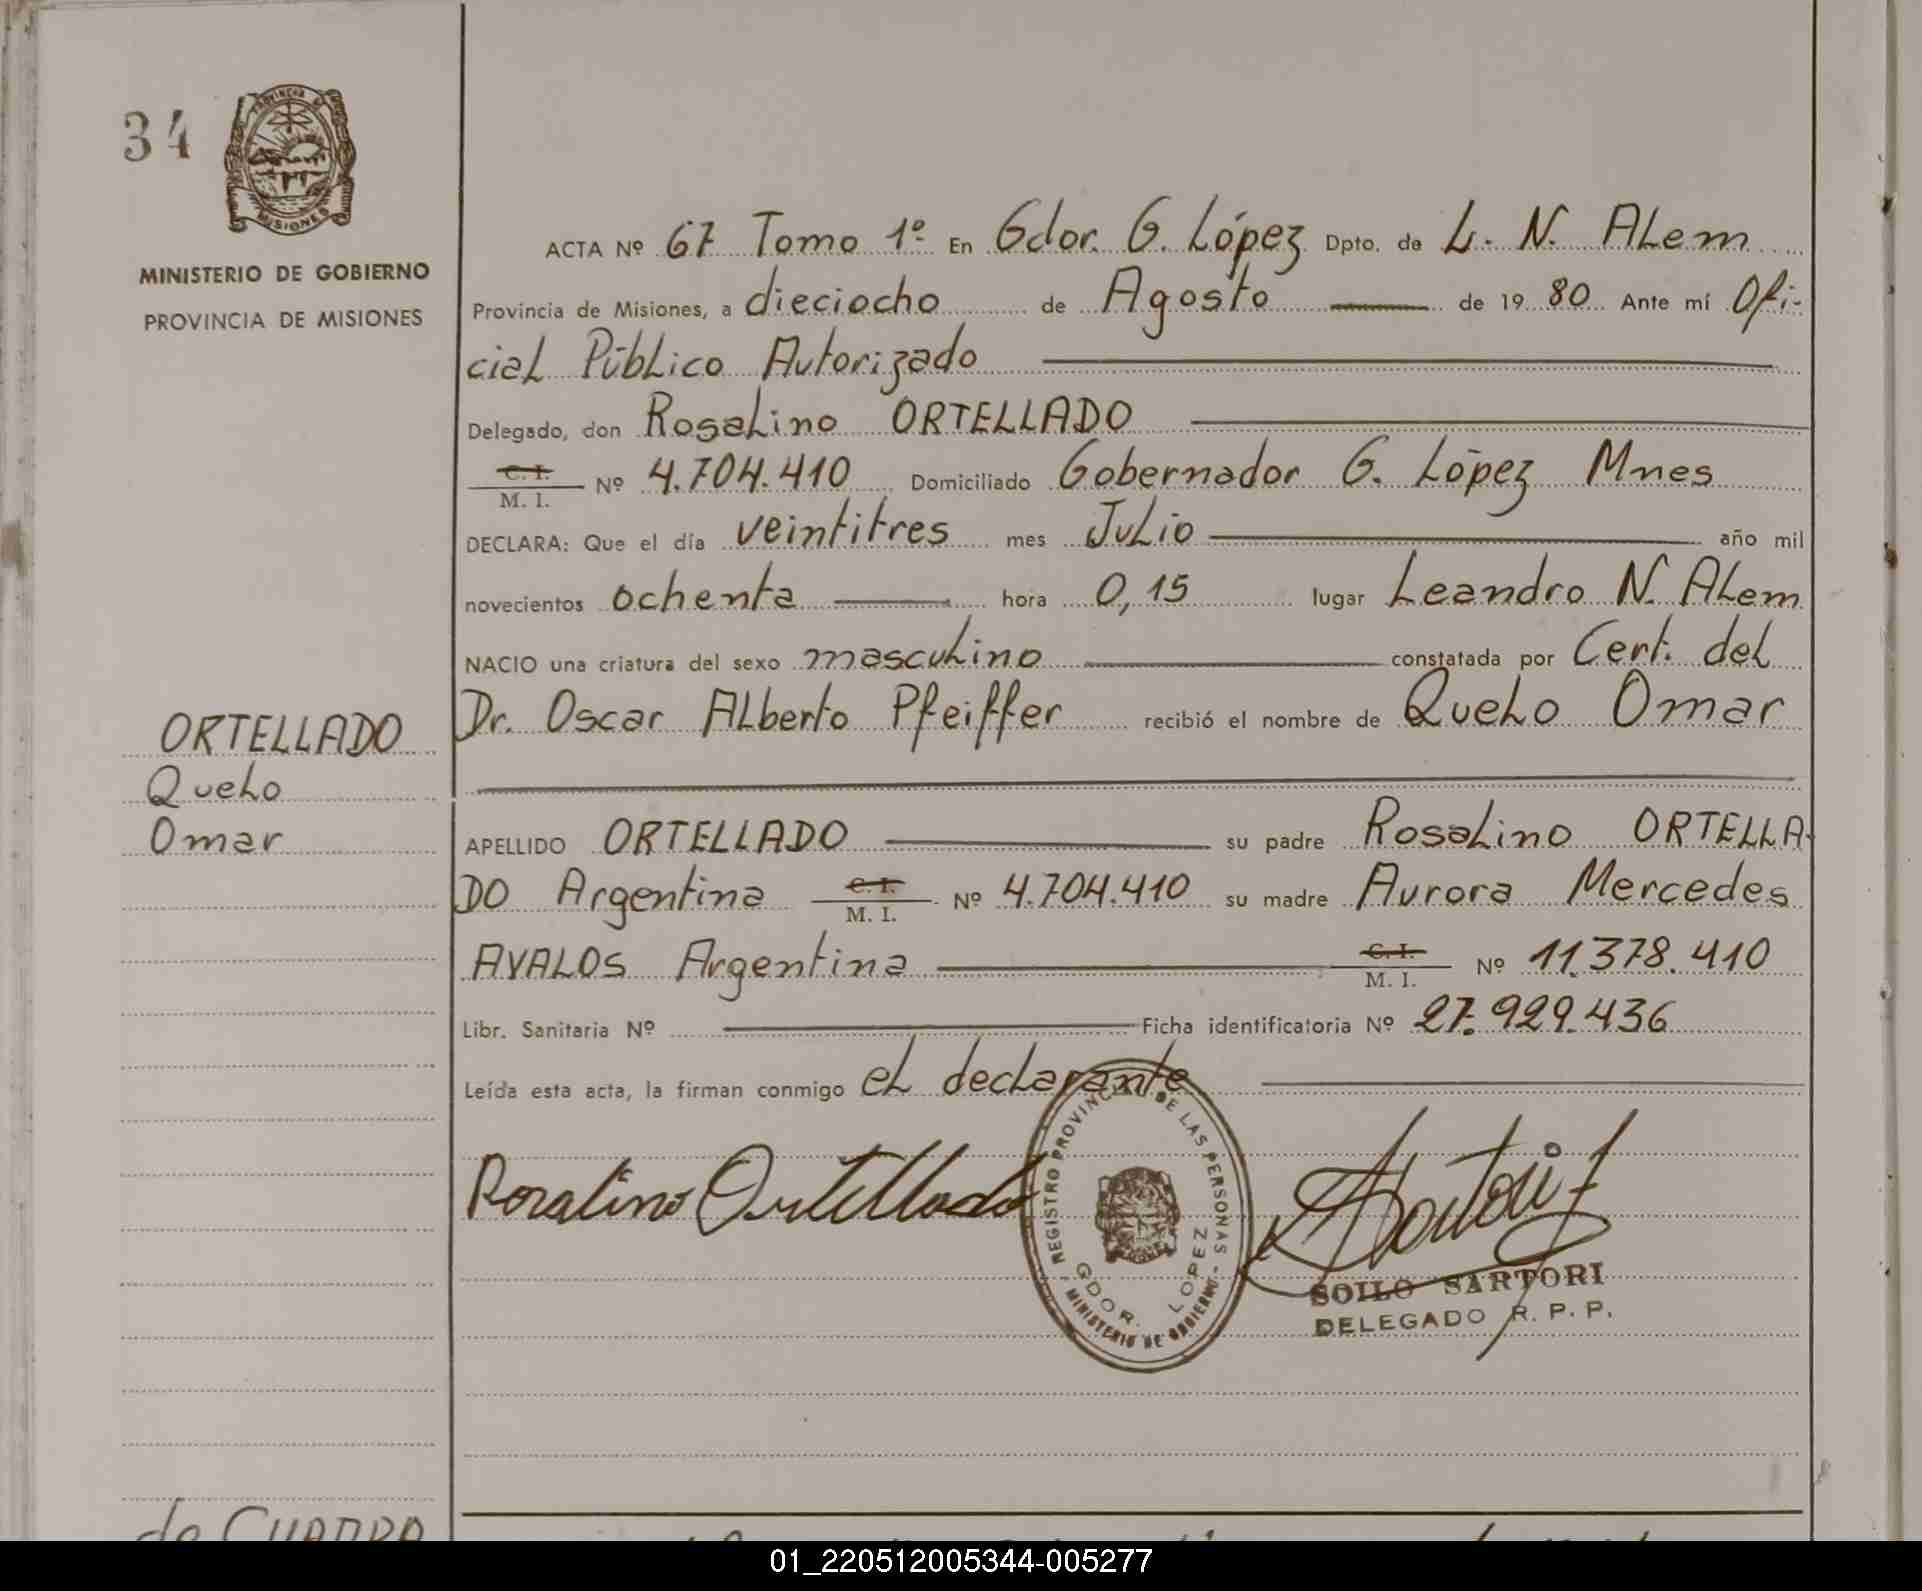 34
PROVINCIA DE
MISIONES
MINISTERIO DE GOBIERNO
PROVINCIA DE MISIONES
ACTA Nº 67 Tomo 1º En Gdor. G. López Dpto. de L. N. ALem
Provincia de Misiones, a dieciocho de Agosto de 19 80 Ante mí Ofi-
cial Público Autorizado
Delegado, don Rosalino ORTELLADO
C. I.
M. I. Nº 4.704.410 Domiciliado Gobernador G. López Mnes
DECLARA: Que el día veintitres mes Julio año mil
novecientos ochenta hora 0,15 lugar Leandro N. ALem
NACIO una criatura del sexo masculino constatada por Cert. del
Dr. Oscar Alberto Pfeiffer recibió el nombre de Quelo Omar
ORTELLADO
Quelo
Omar
APELLIDO ORTELLADO su padre Rosalino ORTELLA-
DO Argentina C. I.
M. I. Nº 4.704.410 su madre Aurora Mercedes
AVALOS Argentina C. I.
M. I. Nº 11.378.410
Libr. Sanitaria Nº Ficha identificatoria Nº 27.929.436
Leída esta acta, la firman conmigo el declarante
Rosalino Ortellado
REGISTRO PROVINCIAL DE LAS PERSONAS
GDOR. LOPEZ
MINISTERIO DE GOBIERNO
SOILO SARTORI
DELEGADO R. P. P.
01_220512005344-005277